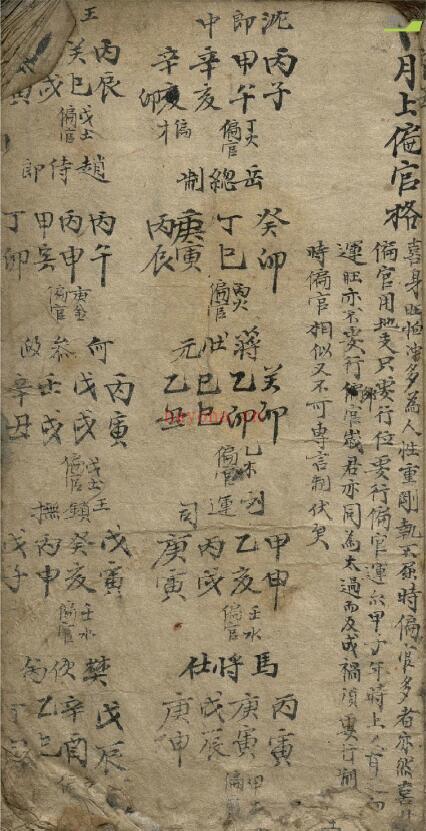 月上偏官格
喜身旺怕冲多為人性重剛執不屈時偏官多者亦然喜
偏官用地支只要行位要行偏官運 甲子年時上
運旺亦不要行偏官歲君亦同為太過而反成禍須要行制
時偏官相似又不可專言制伏矣
沈郎中
丙子
甲午
辛亥
辛卯
丁火偏官
偏才
岳總制
癸卯
丁巳
庚寅
丙辰
丙火偏官
蔣狀元
癸卯
乙卯
己巳
乙丑
乙木偏官
刘運司
甲申
乙亥
丙戌
庚寅
壬水偏官
馬將仕
丙寅
庚寅
戊辰
庚申
偏
王
丙辰
癸巳
戌
寅
戊土偏官
趙侍郎
丙午
丙申
甲寅
丁卯
庚金偏官
何參政
丙寅
戊戌
壬戌
辛丑
戊土偏官
王鎮撫
戊寅
癸亥
丙申
戊子
壬水偏官
樊
戊辰
辛酉
乙巳